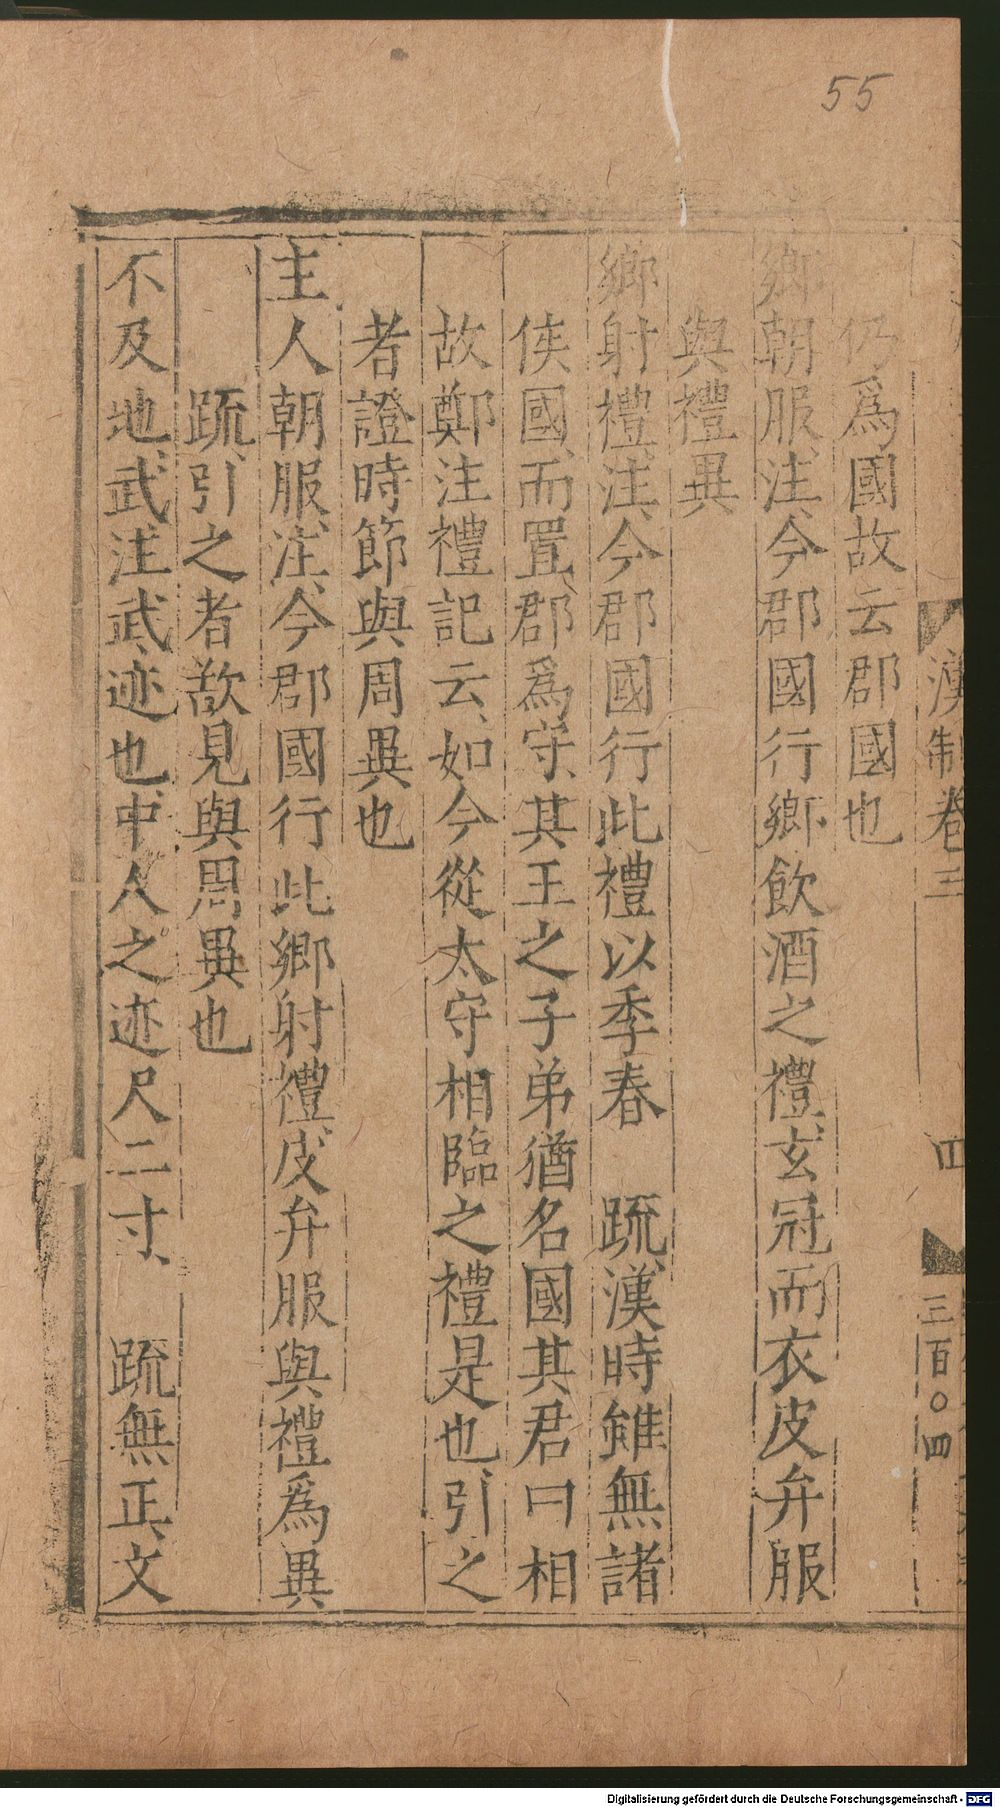 55
漢制卷三
四
三百〇四
仍爲國故云郡國也
鄉朝服、注、今郡國行鄉飲酒之禮、玄冠而衣皮弁服
與禮異
鄉射禮、注、今郡國行此禮以季春　疏、漢時雖無諸
侯國、而置郡爲守、其王之子弟猶名國其君曰相
故鄭注禮記云、如今從太守相臨之禮是也、引之
者證時節與周異也
主人朝服、注、今郡國行此鄉射禮、皮弁服與禮爲異
疏、引之者敨見與周異也
不及地、武、注、武、迹也、中人之迹尺二寸、　疏無正文
Digitalisierung gefördert durch die Deutsche Forschungsgemeinschaft - DFG